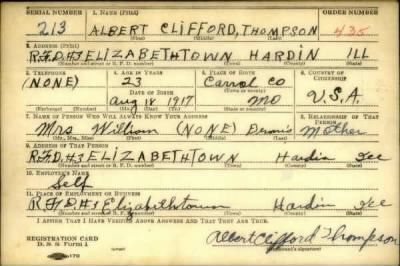 SERIAL NUMBER 1. NAME (Print) ORDER NUMBER
213 ALBERT CLIFFORD, THOMPSON 435
(First) (Middle) (Last)
2. ADDRESS (Print)
R.F.D.#3 ELIZABETHTOWN HARDIN ILL
(Number and street or R. F. D. number) (Town) (County) (State)
3. TELEPHONE 4. AGE IN YEARS 5. PLACE OF BIRTH 6. COUNTRY OF CITIZENSHIP
(NONE) 23 Carrol Co
DATE OF BIRTH (Town or county)
Aug 18 1917 MO U.S.A.
(Exchange) (Number) (Mo.) (Day) (Yr.) (State or country)
7. NAME OF PERSON WHO WILL ALWAYS KNOW YOUR ADDRESS 8. RELATIONSHIP OF THAT PERSON
Mrs William (NONE) Dennis Mother
(Mr., Mrs., Miss) (First) (Middle) (Last)
9. ADDRESS OF THAT PERSON
R.F.D.#3 ELIZABETHTOWN Hardin Ill
(Number and street or R. F. D. number) (Town) (County) (State)
10. EMPLOYER'S NAME
Self
11. PLACE OF EMPLOYMENT OR BUSINESS
R.F.D.#3 Elizabethtown Hardin Ill
(Number and street or R. F. D. number) (Town) (County) (State)
I AFFIRM THAT I HAVE VERIFIED ABOVE ANSWERS AND THAT THEY ARE TRUE.
REGISTRATION CARD
D. S. S. Form 1
Albert Clifford Thompson
(Registrant's signature)